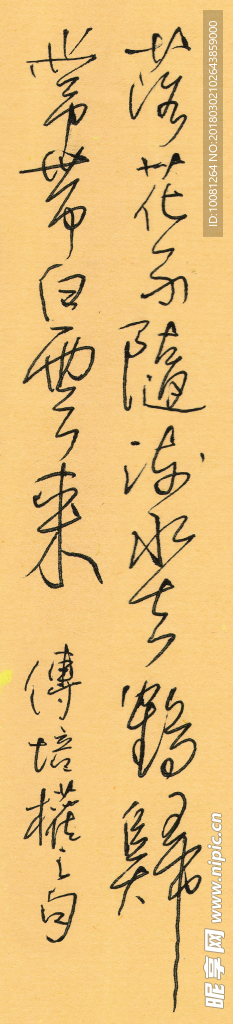 落花不隨流水去鶴歸
常帶白雲來
傅培權之句
ID:10081264 NO:20180302102643859000
昵享网 www.nipic.cn